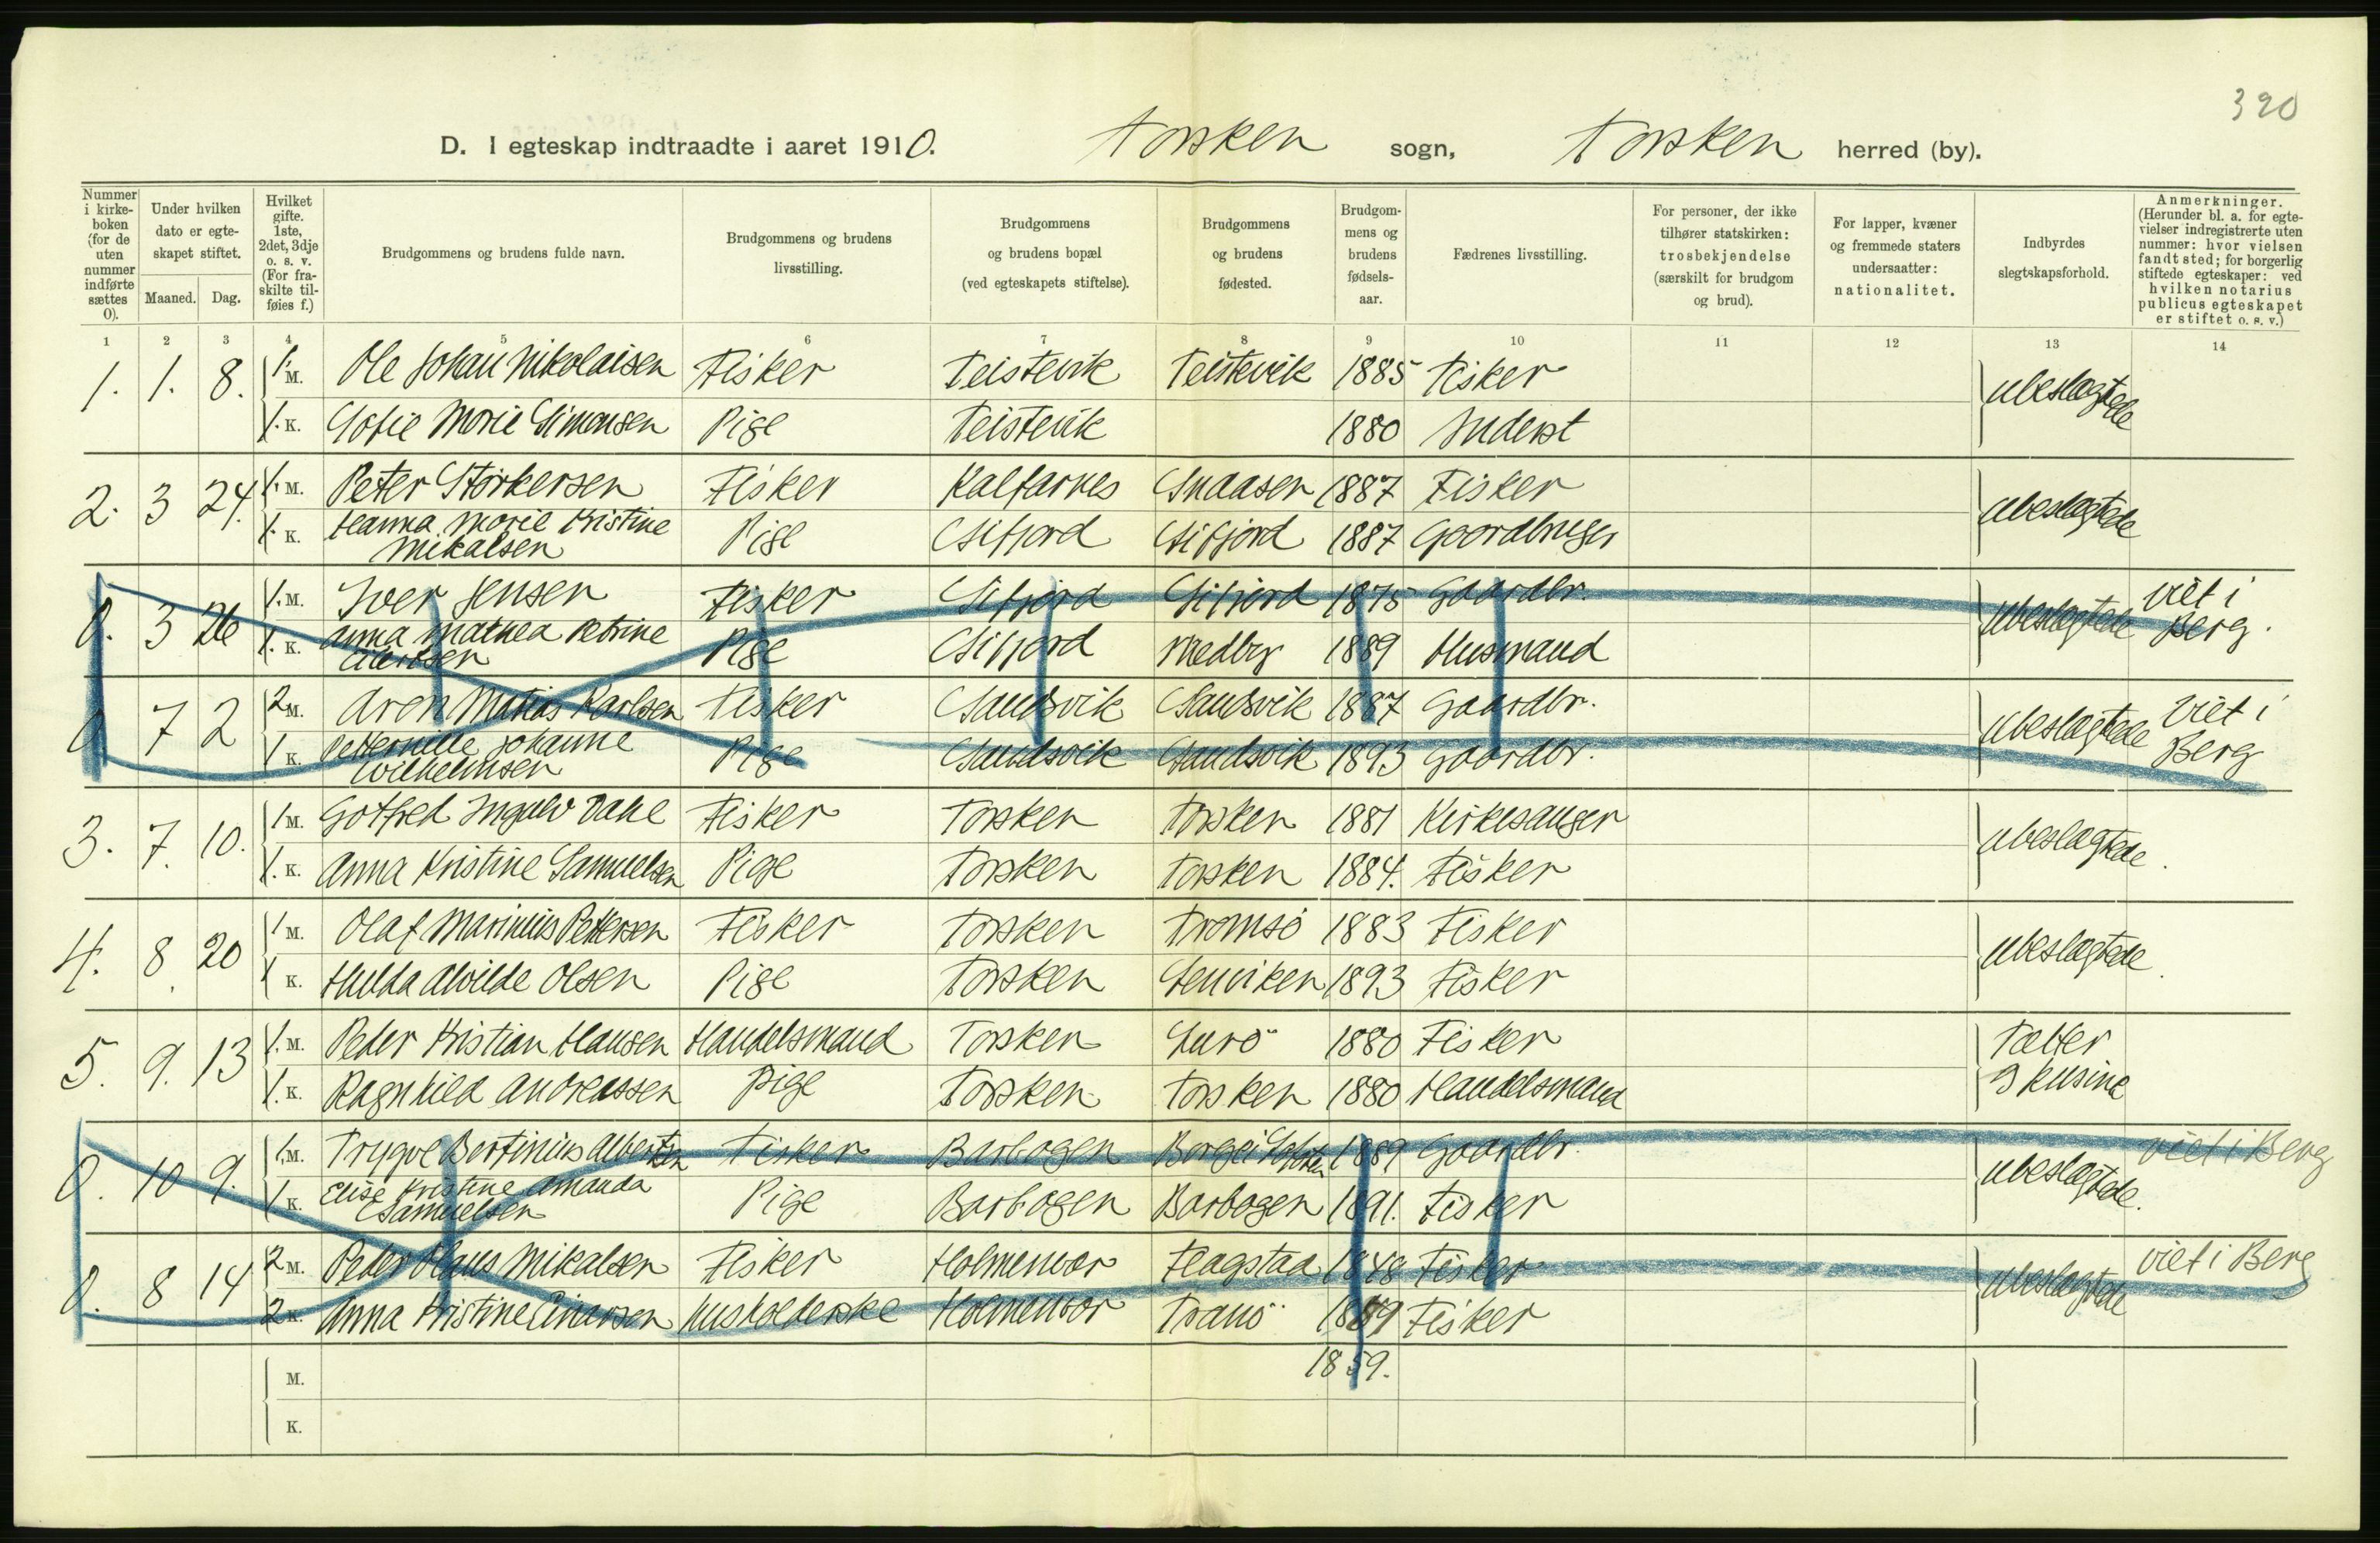 320
D. I egteskap indtraadte i aaret 1910. Torsken sogn, Torsken herred (by).
Nummer i kirke-boken (for de uten nummer indførte sættes 0).
Under hvilken dato er egte-skapet stiftet.
Maaned. Dag.
Hvilket gifte. 1ste, 2det, 3dje o. s. v. (For fra-skilte til-føies f.)
Brudgommens og brudens fulde navn.
Brudgommens og brudens livsstilling.
Brudgommens og brudens bopæl (ved egteskapets stiftelse).
Brudgommens og brudens fødested.
Brudgom-mens og brudens fødsels-aar.
Fædrenes livsstilling.
For personer, der ikke tilhører statskirken: trosbekjendelse (særskilt for brudgom og brud).
For lapper, kvæner og fremmede staters undersaatter: nationalitet.
Indbyrdes slegtskapsforhold.
Anmerkninger. (Herunder bl. a. for egte-vielser indregistrerte uten nummer: hvor vielsen fandt sted; for borgerlig stiftede egteskaper: ved hvilken notarius publicus egteskapet er stiftet o. s. v.)
1 2 3 4 5 6 7 8 9 10 11 12 13 14
1. 1. 8. 1. M. Ole Johan Nikolaisen Fisker Teistevik Teistevik 1885 Fisker ubeslægtede
1. K. Sofie Marie Simonsen Pige Teistevik 1880 Inderst
2. 3 24. 1. M. Peter Størkersen Fisker Kalfarnes Snaasen 1887 Fisker ubeslægtede
1. K. Hanna Marie Kristine Mikalsen Pige Sifjord Sifjord 1887 Gaardbruger
0. 3 26 1. M. Iver Jensen Fisker Sifjord Sifjord 1875 Gaardbr. ubeslægtede viet i Berg.
1. K. Anna Mathea Petrine Pige Sifjord Medby 1889 Husmand
0 7 2 2 M. Aron Matias Karlsen Fisker Sandsvik Sandsvik 1887 Gaardbr. ubeslægtede Viet i Berg
1 K. Petternille Johanne Wilhelmsen Pige Sandsvik Sandsvik 1893 Gaardbr.
3. 7. 10. 1 M. Gotfred Ingolv Dahl Fisker Torsken Torsken 1881 Kirkesanger ubeslægtede.
1. K. Anna Kristine Samuelsen Pige Torsken Torsken 1884. Fisker
4. 8. 20 1 M. Olaf Marinius Pettersen Fisker Torsken Tromsø 1883 Fisker ubeslægtede.
1 K. Hulda Alvilde Olsen Pige Torsken Lenviken 1893 Fisker
5. 9. 13 1. M. Peder Kristian Hansen Handelsmand Torsken Lurö 1880 Fisker Fætter
1. K. Ragnhild Andreassen Pige Torsken Torsken 1880 Handelsmand & kusine
0. 10 9. 1. M. Trygve Bertinius Albertsen Fisker Barbogen Borge i Lofoten 1889 Gaardbr. ubeslægtede. viet i Berg
1 K. Elise Kristine Amanda Samuelsen Pige Barbogen Barbogen 1891. Fisker
0. 8 14 2 M. Peder Klaus Mikalsen Fisker Holmenvær Flagstad 1848 Fisker ubeslægtede viet i Berg
2 K. Anna Kristine Einarsen husholderske Holmenvær Tranö 1889 Fisker
1859.
M.
K.